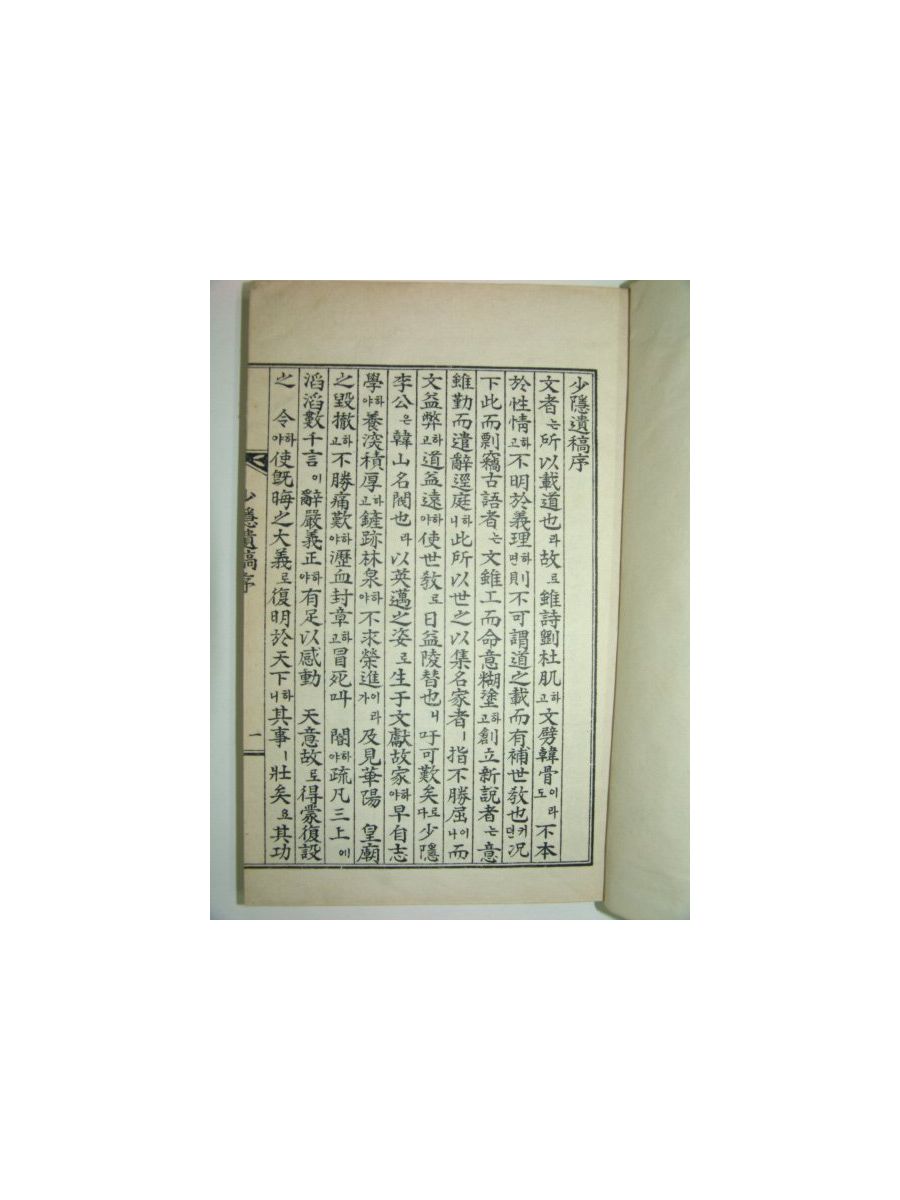 少隱遺稿序
文者는所以載道也라故로雖詩劉杜肌하고文劈韓骨이라도不本
於性情하고不明於義理하면則不可謂道之載而有補世敎也커던況
下此而剽竊古語者는文雖工而命意糊塗하고創立新說者는意
雖勤而遣辭逕庭하니此所以世之以集名家者ㅣ指不勝屈이나而
文益弊하고道益遠하야使世敎로日益陵替也니吁可歎矣로다少隱
李公은韓山名閥也라以英邁之姿로生于文獻故家하야早自志
學하야養深積厚하고鏟跡林泉하야不求榮進이라가及見華陽 皇廟
之毀撤하고不勝痛歎하야瀝血封章하고冒死叫 閤하야疏凡三上에
滔滔數千言이辭嚴義正하야有足以感動 天意故로得蒙復設
之 令하야使旣晦之大義로復明於天下하니其事ㅣ壯矣요其功
少隱遺稿序 一